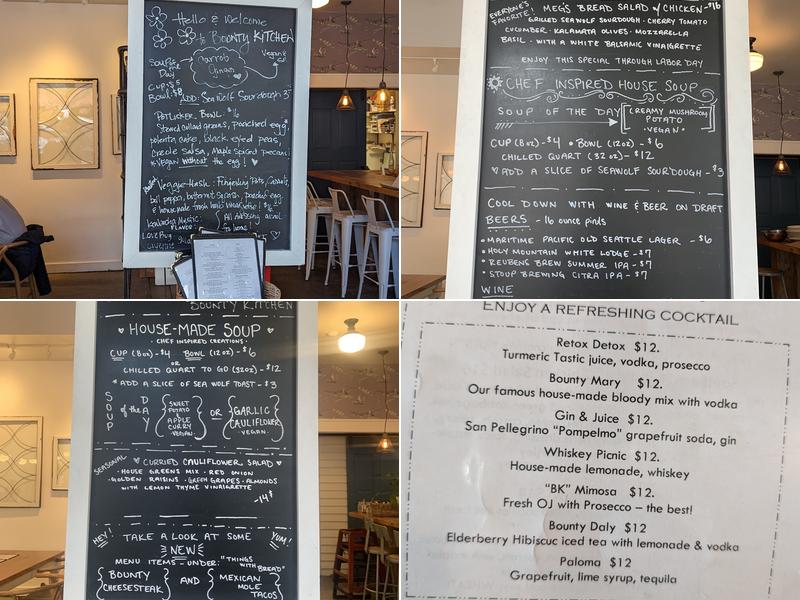 Hello & Welcome
to Bounty Kitchen
Soup of the Day
Vegan &
Carrot
Cup $5
Bowl $8
ADD: Seawolf Sourdough 3
POTLICKER BOWL $16
Stewed collard greens, poached egg,
polenta cake, black eyed peas,
creole salsa, Maple spiced pecans
*Vegan without the egg!
Veggie Hash: Fingerling Pots, Carrots,
bell pepper, butternut squash, poached egg
EVERYONE'S FAVORITE! MEG'S BREAD SALAD w/ CHICKEN - $16
GRILLED SEAWOLF SOURDOUGH · CHERRY TOMATO
CUCUMBER · KALAMATA OLIVES · MOZZARELLA
BASIL · WITH A WHITE BALSAMIC VINAIGRETTE
ENJOY THIS SPECIAL THROUGH LABOR DAY
CHEF INSPIRED HOUSE SOUP
SOUP OF THE DAY
CREAMY MUSHROOM
POTATO
· VEGAN ·
CUP (8 oz) - $4 • BOWL (12 oz) - $6
CHILLED QUART (32 oz) - $12
ADD A SLICE OF SEAWOLF SOURDOUGH - $3
COOL DOWN WITH WINE & BEER ON DRAFT
BEERS - 16 ounce pints
• MARITIME PACIFIC OLD SEATTLE LAGER - $6
• HOLY MOUNTAIN WHITE LODGE - $7
• REUBENS BREW SUMMER IPA - $7
• STOUP BREWING CITRA IPA - $7
WINE
BOUNTY KITCHEN
HOUSE-MADE SOUP
· CHEF INSPIRED CREATIONS ·
CUP (8 oz) - $4 BOWL (12 oz) - $6
OR
CHILLED QUART TO GO (32oz) - $12
* ADD A SLICE OF SEA WOLF TOAST - $3
SOUP of the DAY
SWEET
POTATO
APPLE
CURRY
VEGAN
OR
GARLIC
CAULIFLOWER
VEGAN
SEASONAL
CURRIED CAULIFLOWER SALAD
· HOUSE GREENS MIX · RED ONION
· GOLDEN RAISINS · GREEN GRAPES · ALMONDS
WITH LEMON THYME VINAIGRETTE
- 14$
HEY! TAKE A LOOK AT SOME YUM!
NEW
MENU ITEMS - UNDER: "THINGS
WITH BREAD"
BOUNTY
CHEESESTEAK
AND
MEXICAN
MOLE
TACOS
ENJOY A REFRESHING COCKTAIL
Retox Detox $12.
Turmeric Tastic juice, vodka, prosecco
Bounty Mary $12.
Our famous house-made bloody mix with vodka
Gin & Juice $12.
San Pellegrino "Pompelmo" grapefruit soda, gin
Whiskey Picnic $12.
House-made lemonade, whiskey
"BK" Mimosa $12.
Fresh OJ with Prosecco – the best!
Bounty Daly $12
Elderberry Hibiscuc iced tea with lemonade & vodka
Paloma $12
Grapefruit, lime syrup, tequila